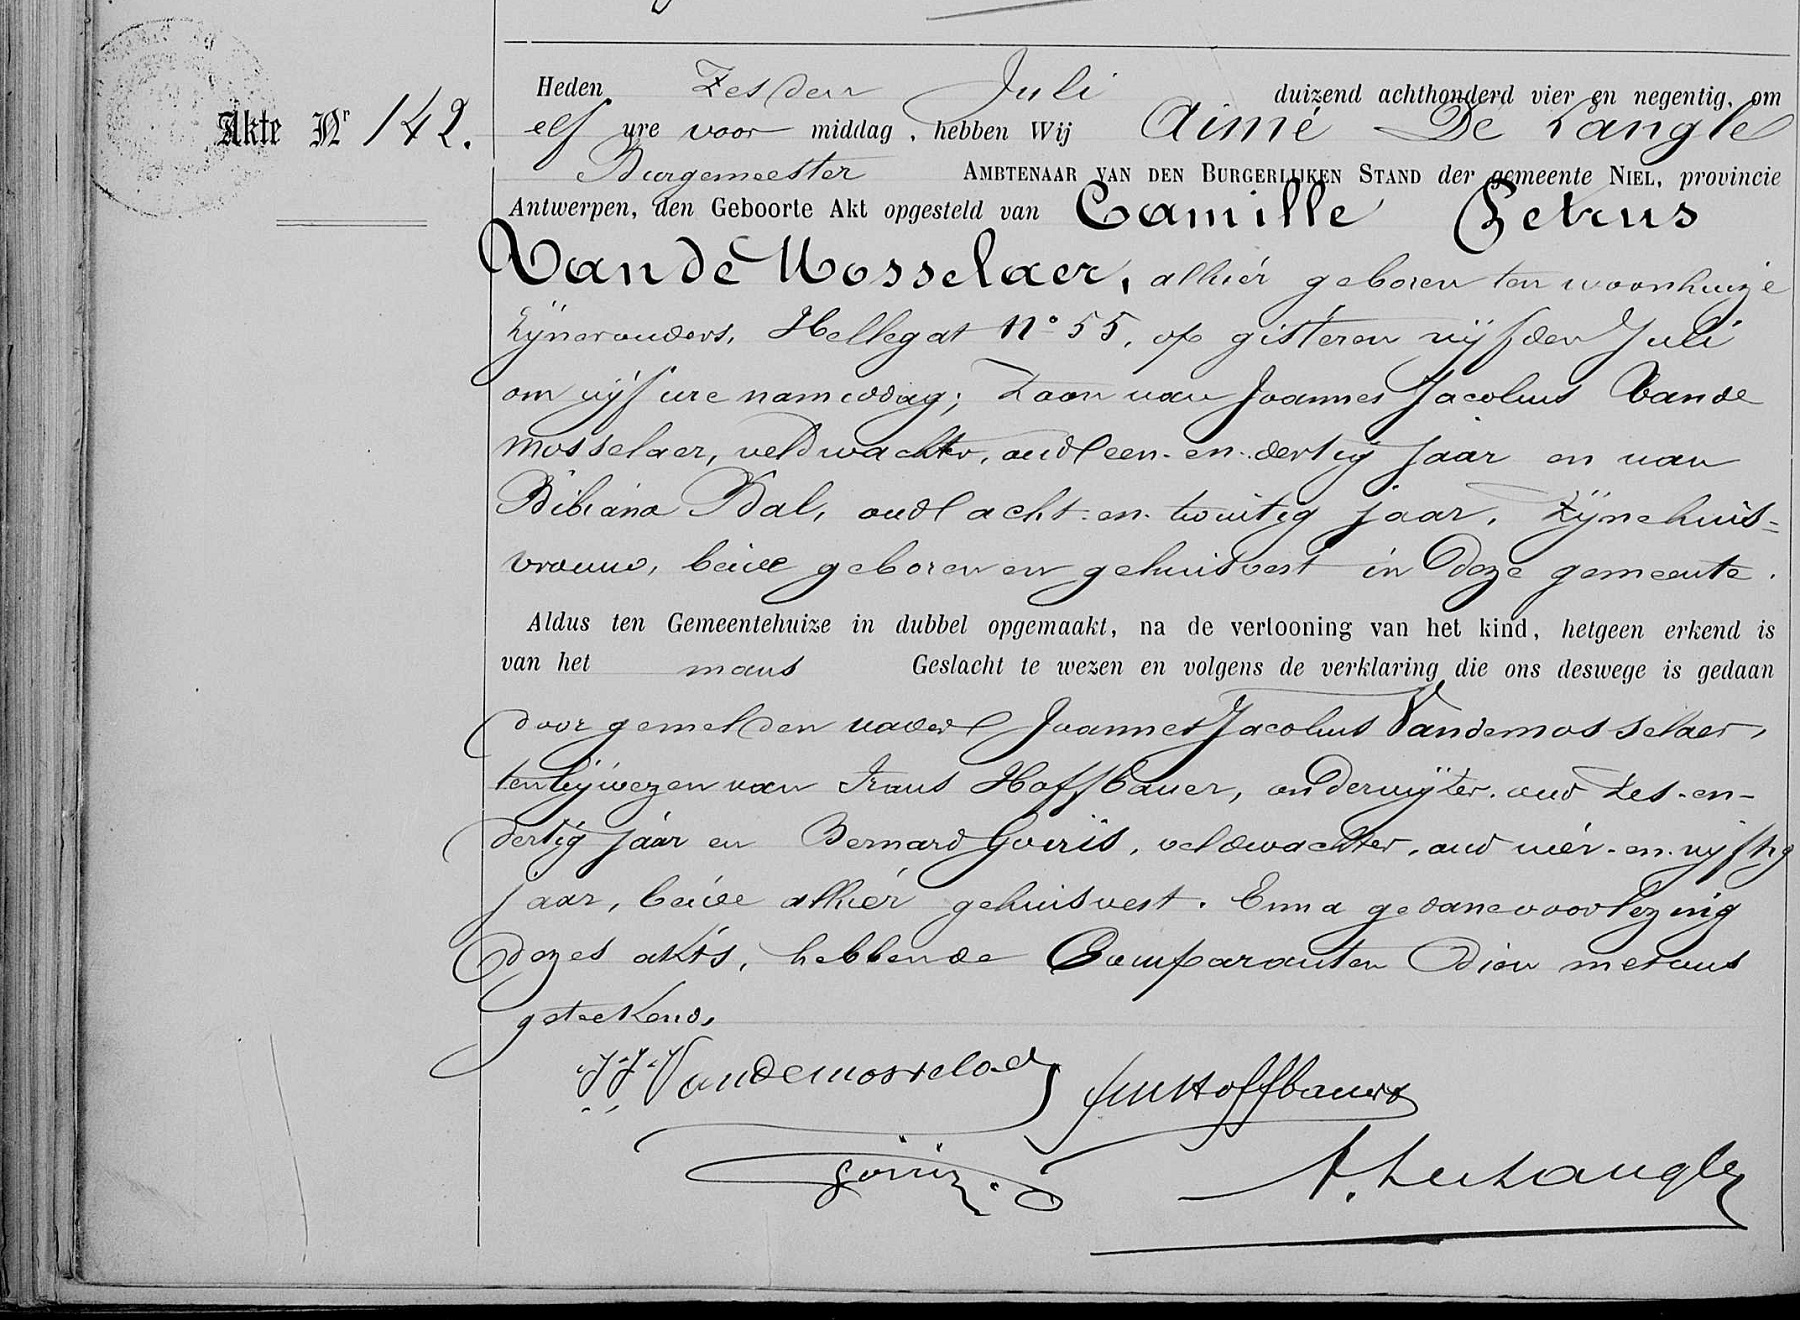 Akte Nr 142.
Heden Zesden Juli duizend achthonderd vier en negentig, om
elf ure voor middag, hebben Wij Aimé De Langle
Burgemeester AMBTENAAR VAN DEN BURGERLIJKEN STAND der gemeente NIEL, provincie
Antwerpen, den Geboorte Akt opgesteld van Camille Petrus
Van de Mosselaer, alhier geboren ten woonhuize
zijner ouders, Hellegat No 55, op gisteren vijfden Juli
om vijf ure namiddag; Zoon van Joannes Jacobus Van de
Mosselaer, veldwachter, oud een-en-dertig jaar en van
Bibiana Bal, oud acht-en-twintig jaar, zijne huis=
vrouw, beide geboren en gehuisvest in deze gemeente.
Aldus ten Gemeentehuize in dubbel opgemaakt, na de vertooning van het kind, hetgeen erkend is
van het mans Geslacht te wezen en volgens de verklaring die ons deswege is gedaan
door gemelden vader Joannes Jacobus Vandemosselaer,
ten bijwezen van Frans Hoffbauer, onderwijzer, oud zes-en-
dertig jaar en Bernard Goeris, veldwachter, oud vier-en-vijftig
jaar, beide alhier gehuisvest. En na gedane voorlezing
dezes akts, hebben de Comparanten dien met ons
geteekend.
J. J. Vandemosselaer Hoffbauer